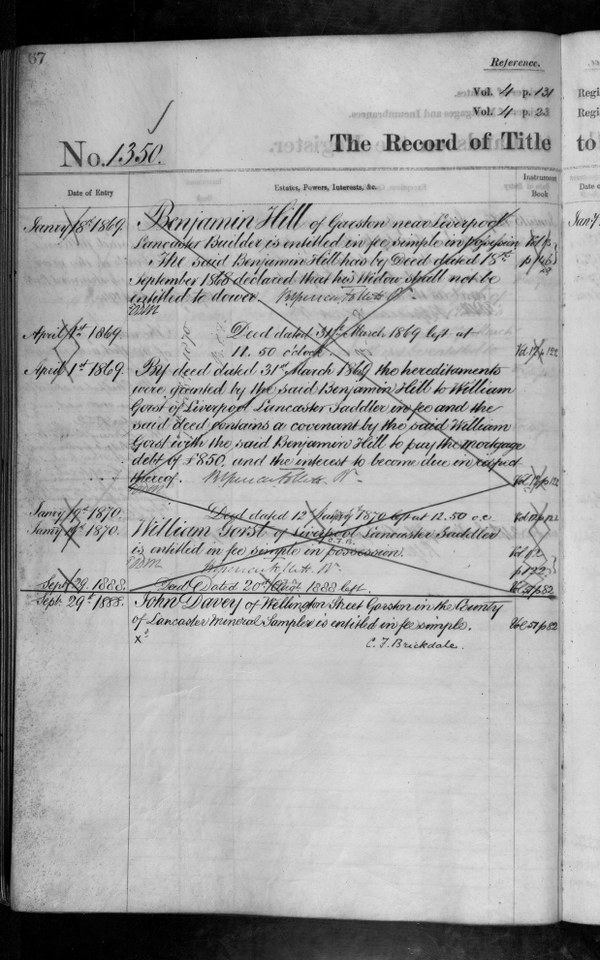 67
Reference.
Vol. 4 p. 131
Vol. 4 p. 23
No. 1350.
The Record of Title
Regi
Regi
to
Date of Entry
Estates, Powers, Interests, &c.
Instrument
Book
Date o
Janry 18th 1869.
Benjamin Hill of Garston near Liverpool
Lancaster Builder is entitled in fee simple in possession
The said Benjamin Hill has by Deed dated 18th
September 1868 declared that his Widow shall not be
entitled to dower.
April 1st 1869.
Deed dated 31st March 1869 left at
11.50 o'clock.
Vol 17 p 122
April 1st 1869.
By deed dated 31st March 1869 the hereditaments
were granted by the said Benjamin Hill to William
Gorst of Liverpool Lancaster Saddler in fee and the
said deed contains a covenant by the said William
Gorst with the said Benjamin Hill to pay the mortgage
debt of £850. and the interest to become due in respect
thereof.
Vol 17 p 122
Janry 19th 1870.
Deed dated 12th Janry 1870 left at 12.50 o.c.
Janry 19th 1870.
William Gorst of Liverpool Lancaster Saddler
is entitled in fee simple in possession.
Sept. 29. 1888.
Deed dated 20th 1888 left.
Vol 51 p 82
Sept. 29th 1888.
John Davey of Wellington Street Garston in the County
of Lancaster Mineral Sampler is entitled in fee simple.
Vol 51 p 82
C. F. Brickdale.